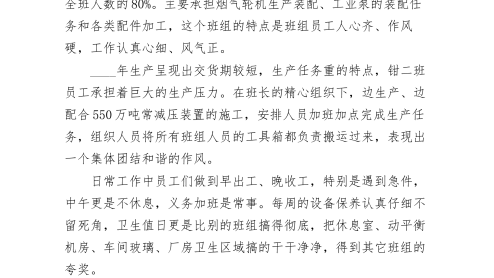 全班人数的 80%。主要承担烟气轮机生产装配、工业泵的装配任
务和各类配件加工，这个班组的特点是班组员工人心齐、作风
硬，工作认真心细、风气正。
____年生产呈现出交货期较短，生产任务重的特点，钳二班
员工承担着巨大的生产压力。在班长的精心组织下，边生产、边
配合 550 万吨常减压装置的施工，安排人员加班加点完成生产任
务，组织人员将所有班组人员的工具箱都负责搬运过来，表现出
一个集体团结和谐的作风。
日常工作中员工们做到早出工、晚收工，特别是遇到急件，
中午更是不休息，义务加班是常事。每周的设备保养认真仔细不
留死角，卫生值日更是比别的班组搞得彻底，把休息室、动平衡
机房、车间玻璃、厂房卫生区域搞的干干净净，得到其它班组的
夸奖。